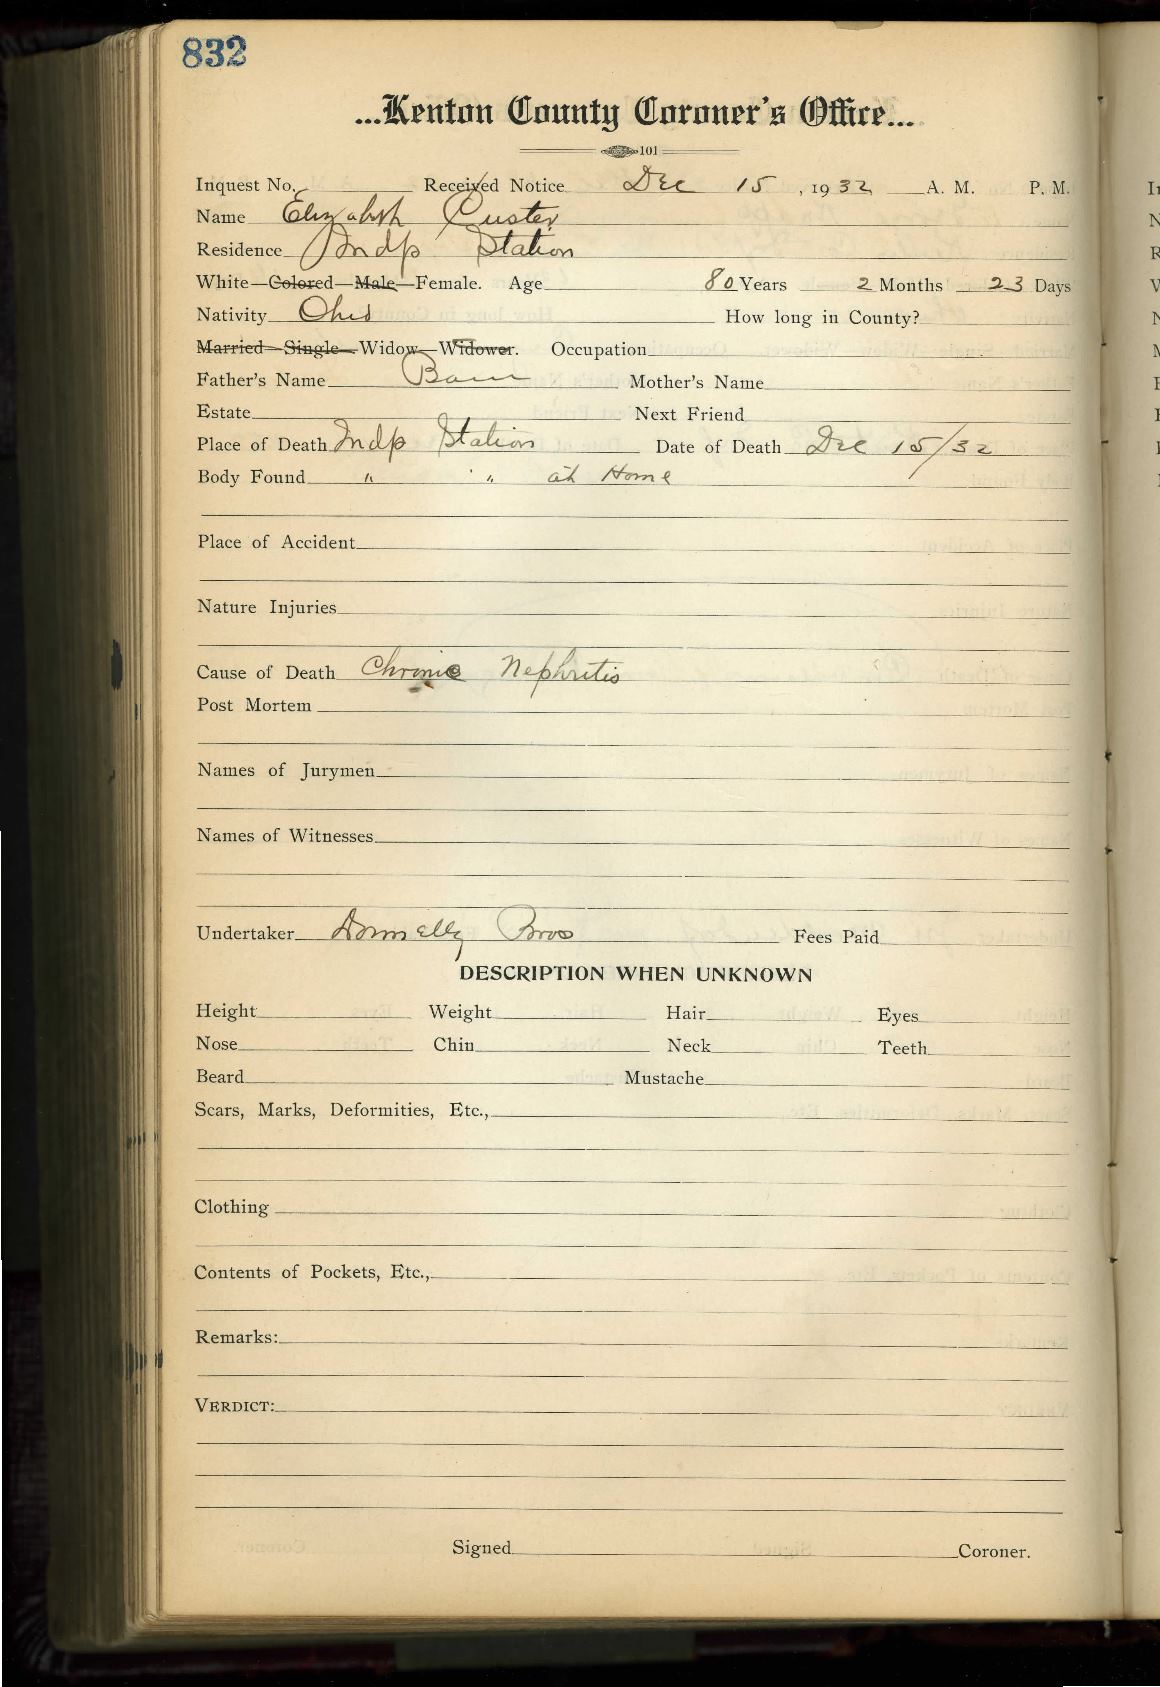 832
...Kenton County Coroner's Office...
101
Inquest No. Received Notice Dec 15, 1932 A. M. P. M.
Name Elizabeth Custer
Residence Indp Station
White—Colored—Male—Female. Age 80 Years 2 Months 23 Days
Nativity Ohio How long in County?
Married—Single—Widow—Widower. Occupation
Father's Name Mother's Name
Estate Next Friend
Place of Death Indp Station Date of Death Dec 15/32
Body Found " " at Home
Place of Accident
Nature Injuries
Cause of Death Chronic Nephritis
Post Mortem
Names of Jurymen
Names of Witnesses
Undertaker Donnelly Bros Fees Paid
DESCRIPTION WHEN UNKNOWN
Height Weight Hair Eyes
Nose Chin Neck Teeth
Beard Mustache
Scars, Marks, Deformities, Etc.,
Clothing
Contents of Pockets, Etc.,
Remarks:
VERDICT:
Signed Coroner.